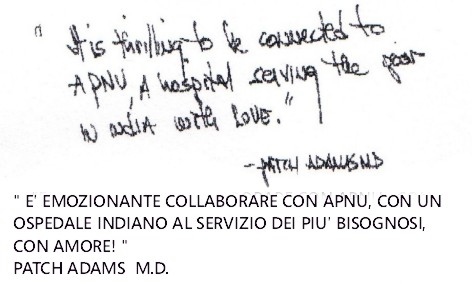 " It is thrilling to be connected to
APNU, A hospital serving the poor
in india with Love."
- PATCH ADAMS MD
" E' EMOZIONANTE COLLABORARE CON APNU, CON UN
OSPEDALE INDIANO AL SERVIZIO DEI PIU' BISOGNOSI,
CON AMORE! "
PATCH ADAMS M.D.